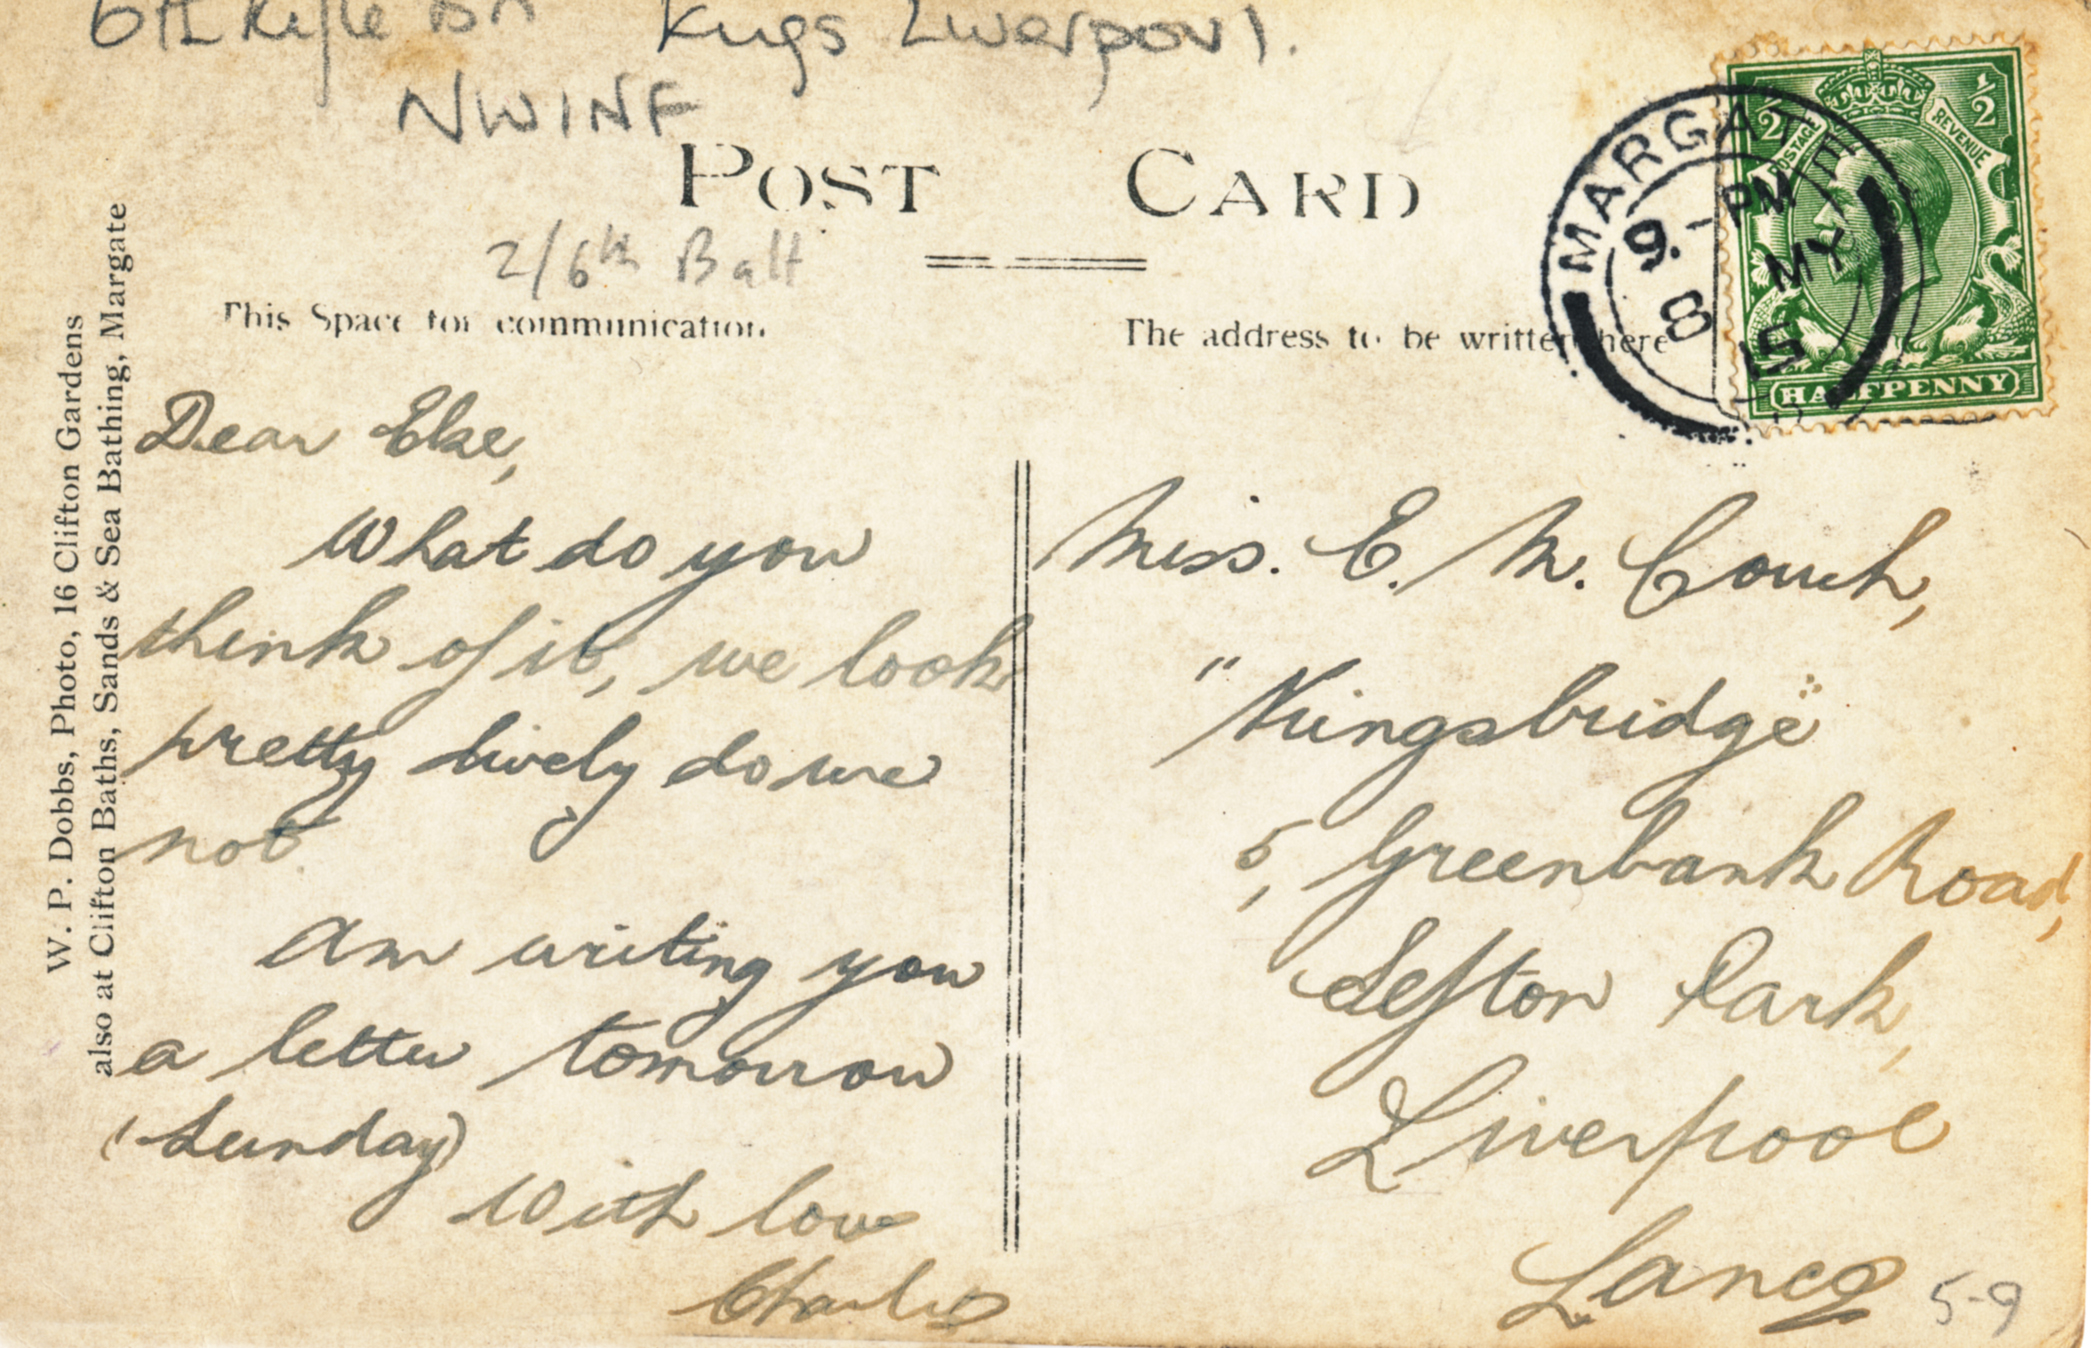 6th Rifle Bn Kings Liverpool.
NWINF
POST CARD
2/6th Batt
This Space for communication.
The address to be written here
W. P. Dobbs, Photo, 16 Clifton Gardens
also at Clifton Baths, Sands & Sea Bathing, Margate
MARGATE
9. - PM
8 MY
15
POSTAGE REVENUE
½ ½
HALFPENNY
Dear Elsie,
What do you
think of it, we look
pretty lively do we
not
Am writing you
a letter tomorrow
(Sunday)
With love
Charlie
Miss. E. M. Couch,
"Kingsbridge"
5, Greenbank Road,
Sefton Park,
Liverpool
Lancs
5-9